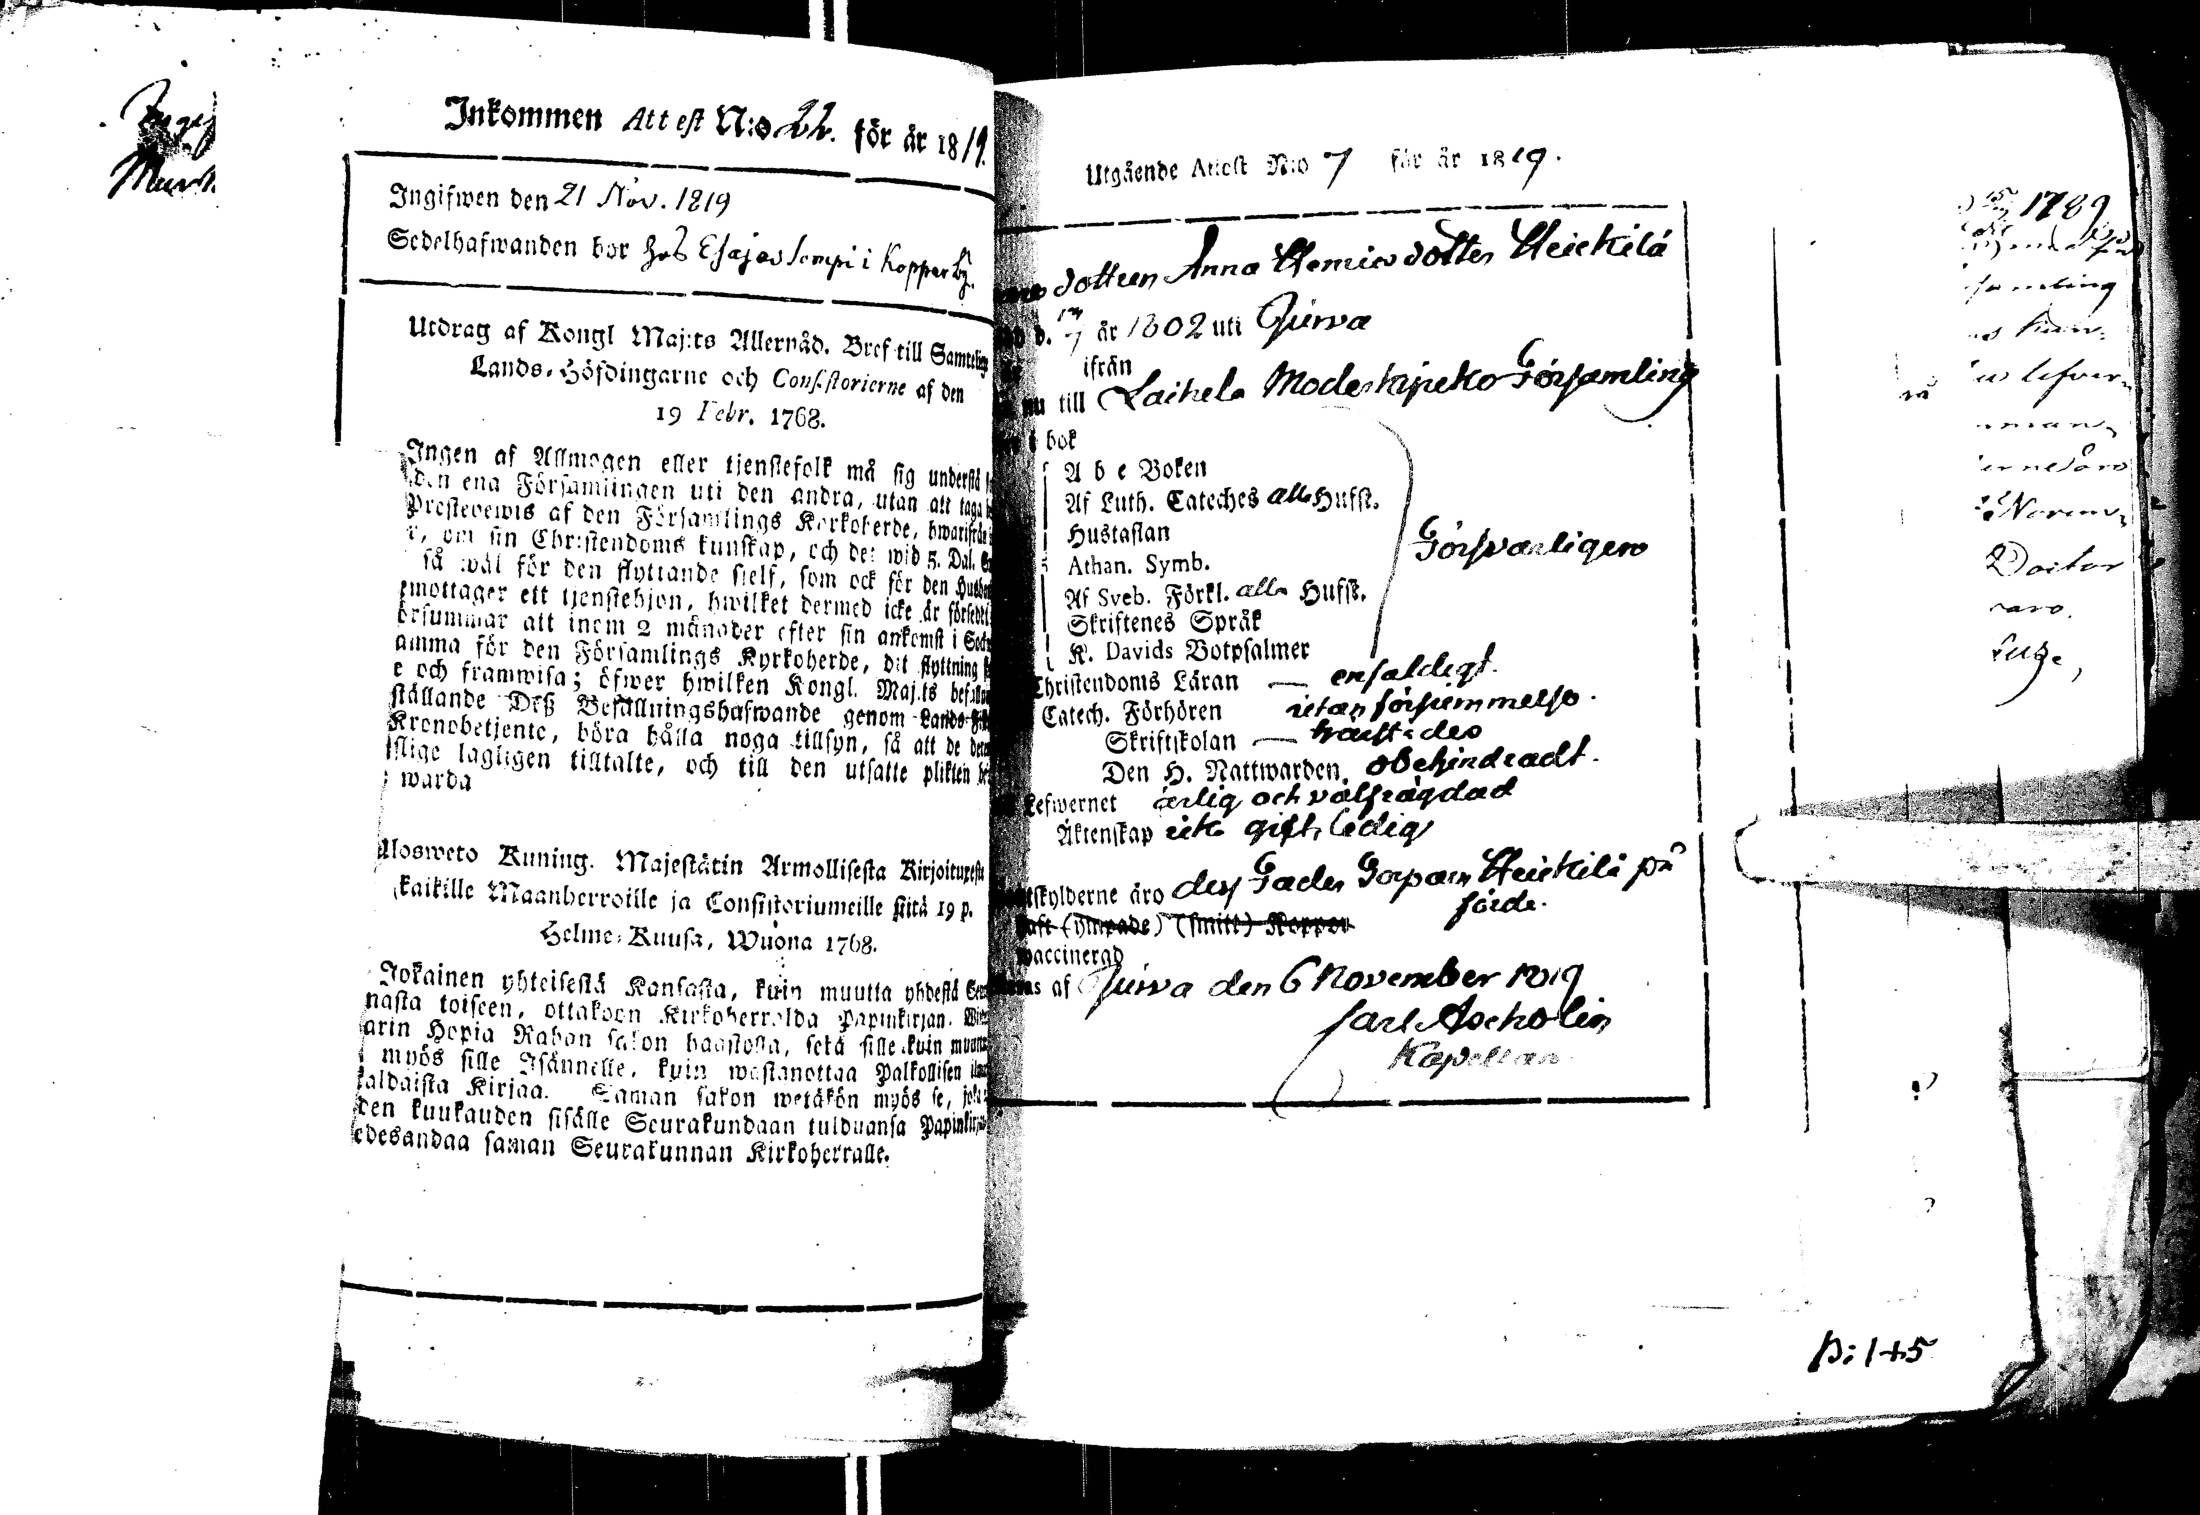 Inkommen Attest N:o 22. för år 1819.
Ingifwen den 21 Nov. 1819
Sedelhafwanden bor hos Esajas Sempi i Kopparby.
Utdrag af Kongl Maj:ts Allernåd. Bref till Samtelige
Lands-Höfdingarne och Consistorierne af den
19 Febr. 1768.
Ingen af Allmogen eller tjenstefolk må sig understå
den ena Församlingen uti den andra, utan att taga
Prestebewis af den Församlings Kyrkoherde, hwarifrån
om sin Christendoms kunskap, och det wid 5. Dal.
så wäl för den flyttande sjelf, som ock för den
emottager ett tjenstehjon, hwilket dermed icke är försedd
örsummar att inom 2 månader efter sin ankomst i
amma för den Församlings Kyrkoherde, dit flyttning
e och framwisa; öfwer hwilken Kongl. Maj:ts
ställande Deß Befallningshafwande genom Lands-
Kronobetjente, böra hålla noga tillsyn, så att de
lagligen tilltalte, och till den utsatte plikten
warda
Ulosweto Kuning. Majestätin Armollisesta Kirjoituxesta
kaikille Maanherroille ja Consistoriumeille siitä 19 p.
Helme-Kuusa, Wuona 1768.
Jokainen yhteisestä Kansasta, kuin muutta yhdestä
nasta toiseen, ottakoon Kirkoherralda Papinkirjan.
arin Hopia Rahan sakon haastolla, sekä sille kuin
myös sille Isännelle, kuin wastanottaa Palkollisen
kaldaista Kirjaa. Saman sakon wetäkön myös se, joka
den kuukauden sisälle Seurakundaan tulduansa
edesandaa saman Seurakunnan Kirkoherralle.
Utgående Attest N:o 7 för år 1819.
dottren Anna Hemics dotter Heickilä
d. 7 är 1802 uti Jurva
ifrån
nu till Laihela Moderkyrko Församling
i bok
A b c Boken
Af Luth. Cateches alla Hufst.
Hustaflan
Athan. Symb.
Af Sveb. Förkl. alla Hufst.
Skriftenes Språk
K. Davids Botpsalmer
Försvarligen
Christendoms Läran — enfaldigt.
Catech. Förhören utan försummelse.
Skriftskolan —
Den H. Nattwarden obehindradt.
Lefwernet ärlig och välfrägdad
Äktenskap icke gift, ledig
skylderne äro des Fader Heickilä på
förde.
haft (ympade) (smitt) Koppor
vaccinerad
af Jurva den 6 November 1819
Carl Ascholin
Kapellan
1789
Doctor
p: 145